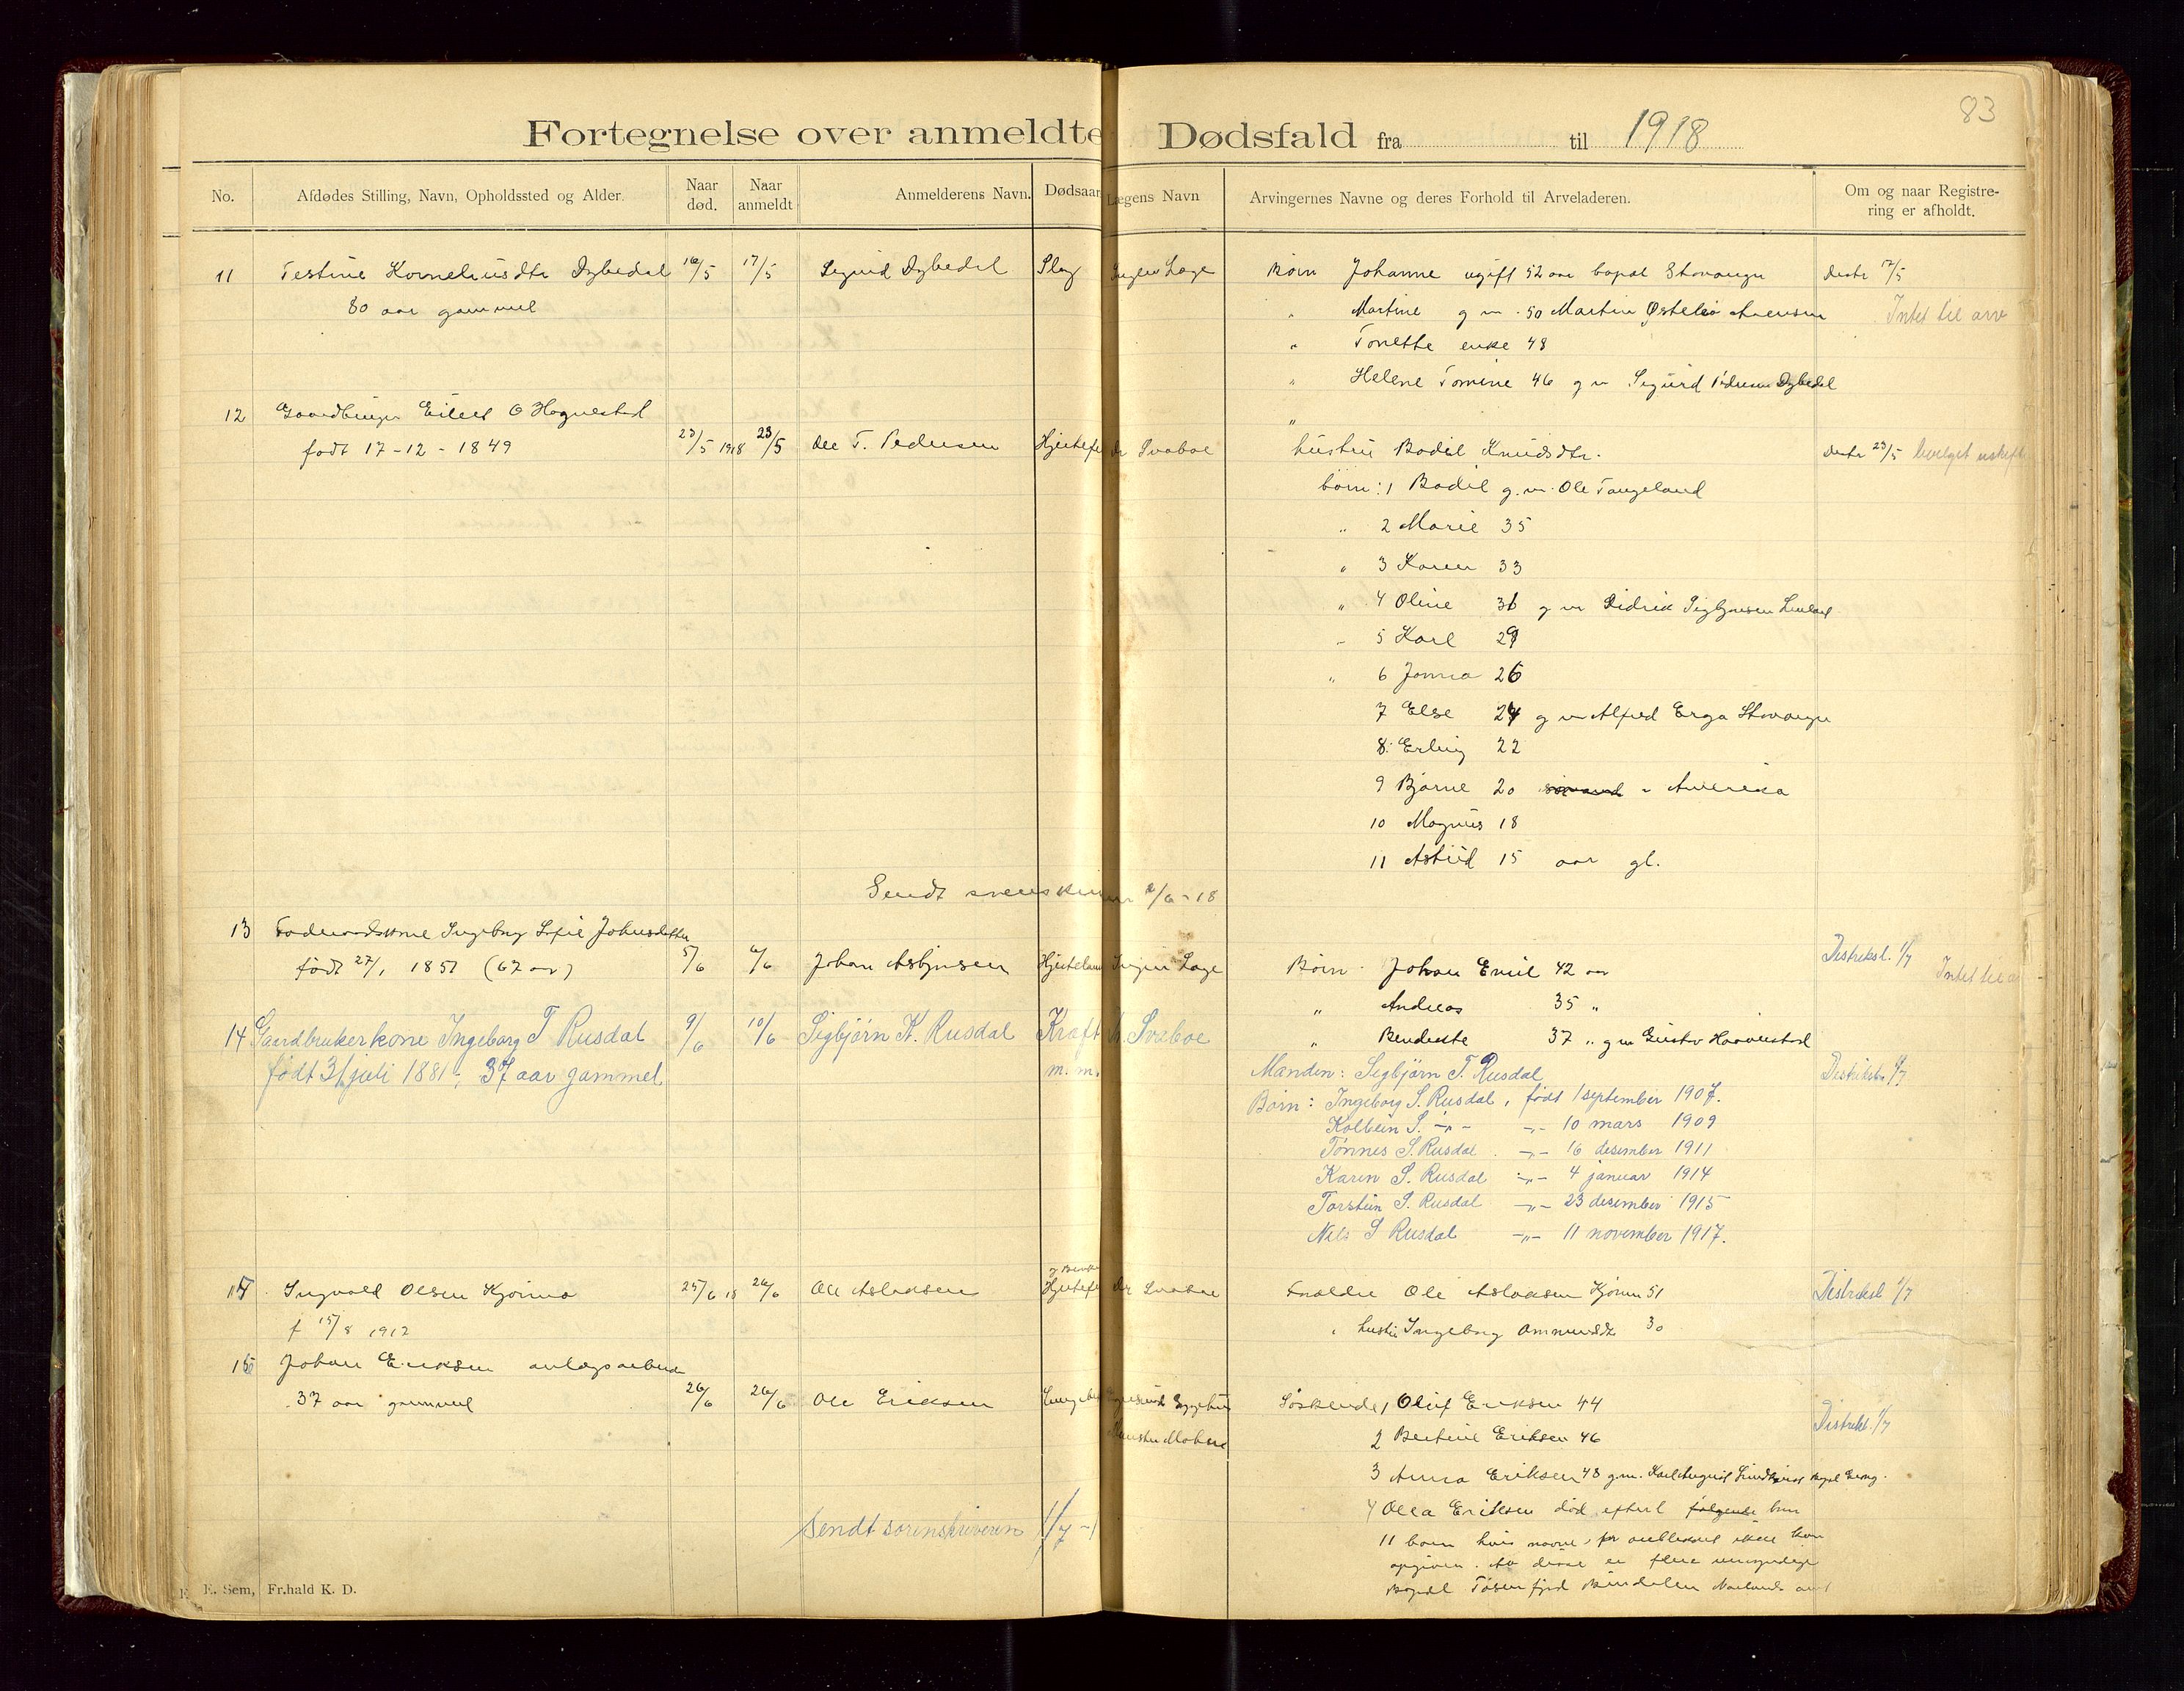 83
Fortegnelse over anmeldte Dødsfald fra til 1918
No.
Afdødes Stilling, Navn, Opholdssted og Alder.
Naar død.
Naar anmeldt
Anmelderens Navn.
Dødsaar
Lægens Navn
Arvingernes Navne og deres Forhold til Arveladeren.
Om og naar Registre-
ring er afholdt.
11 Testine Korneliusdtr Dybedal 16/5 17/5 Sigurd Dybedal Slag Ingen Læge Børn Johanne ugift 52 aar bopæl Stavanger Distr 17/5
80 aar gammel
" Martine g m 50 Martin Østebø Intet til arv
" Tonette enke 48
" Helene Tomine 46 g m Sigurd Pedersen Dybedal
"
12 Gaardbruger Eilert O Hognestad
født 17-12-1849 23/5 1918 23/5 Ole T. Pedersen Hjertefe Dr Svaboe hustru Bodil Knudsdtr. Distr 23/5
børn: 1 Bodil g.m. Ole Tangeland
" 2 Marie 35
" 3 Karen 33
" 4 Oline 31 g m Didrik
" 5 Karl 29
" 6 Jonna 26
7 Else 24 g m Alfred Erga Stavanger
8 Erling 22
9 Bjarne 20 i Amerika
10 Magnus 18
11 Astrid 15 aar gl.
Sendt 2/6-18
13 Foderaadskone Ingeborg Sofie Johnsdatter
født 27/1 1851 (67 aar) 5/6 6/6 Johan Asbjnsen Hjertelam Ingen Læge Børn Johan Emil 42 aar Distriksl. 1/7 Intet til a
" Andreas 35 "
" Bendikte 37 " g m Gustav
14 Gaardbrukerkone Ingeborg T Rusdal 9/6 10/6 Sigbjørn K. Rusdal Kræft Dr. Svaboe
født 31 juli 1881; 37 aar gammel. m. m. Manden: Sigbjørn T. Rusdal Distriksl. 1/7
Børn: Ingeborg S. Rusdal, født 1 september 1907.
Kolbein S. -"- -"- 10 mars 1909
Tønnes S. Rusdal -"- 16 desember 1911
Karen S. Rusdal -"- 4 januar 1914
Torstein S. Rusdal -"- 23 desember 1915
Nils S Rusdal -"- 11 november 1917.
15 Ingvald Olsen Kjørmo 25/6 18 26/6 Ole Aslaksen Hjertefe Dr Svaboe Forældre Ole Aslaksen Kjørm 51 Distriksl 1/7
f 15/8 1912 " hustru Ingeborg Ommundsdtr 30
16 Johan Eriksen anlægsarbeid
37 aar gammel 26/6 26/6 Ole Eriksen Lungebe Søskende 1 Oluf Eriksen 44 Distriksl. 1/7
2 Bertine Eriksen 46
3 Anna Eriksen 48 g.m. Karl August
4 Olea Eriksen død efterl følgende
11 børn hvis navne for øieblikket ikke kan
opgives. Av disse er flere umyndige
bopæl Tosenfjord Bindalen Norlands amt
Sendt sorenskriveren 1/7 -1
E. Sem, Fr.hald K. D.